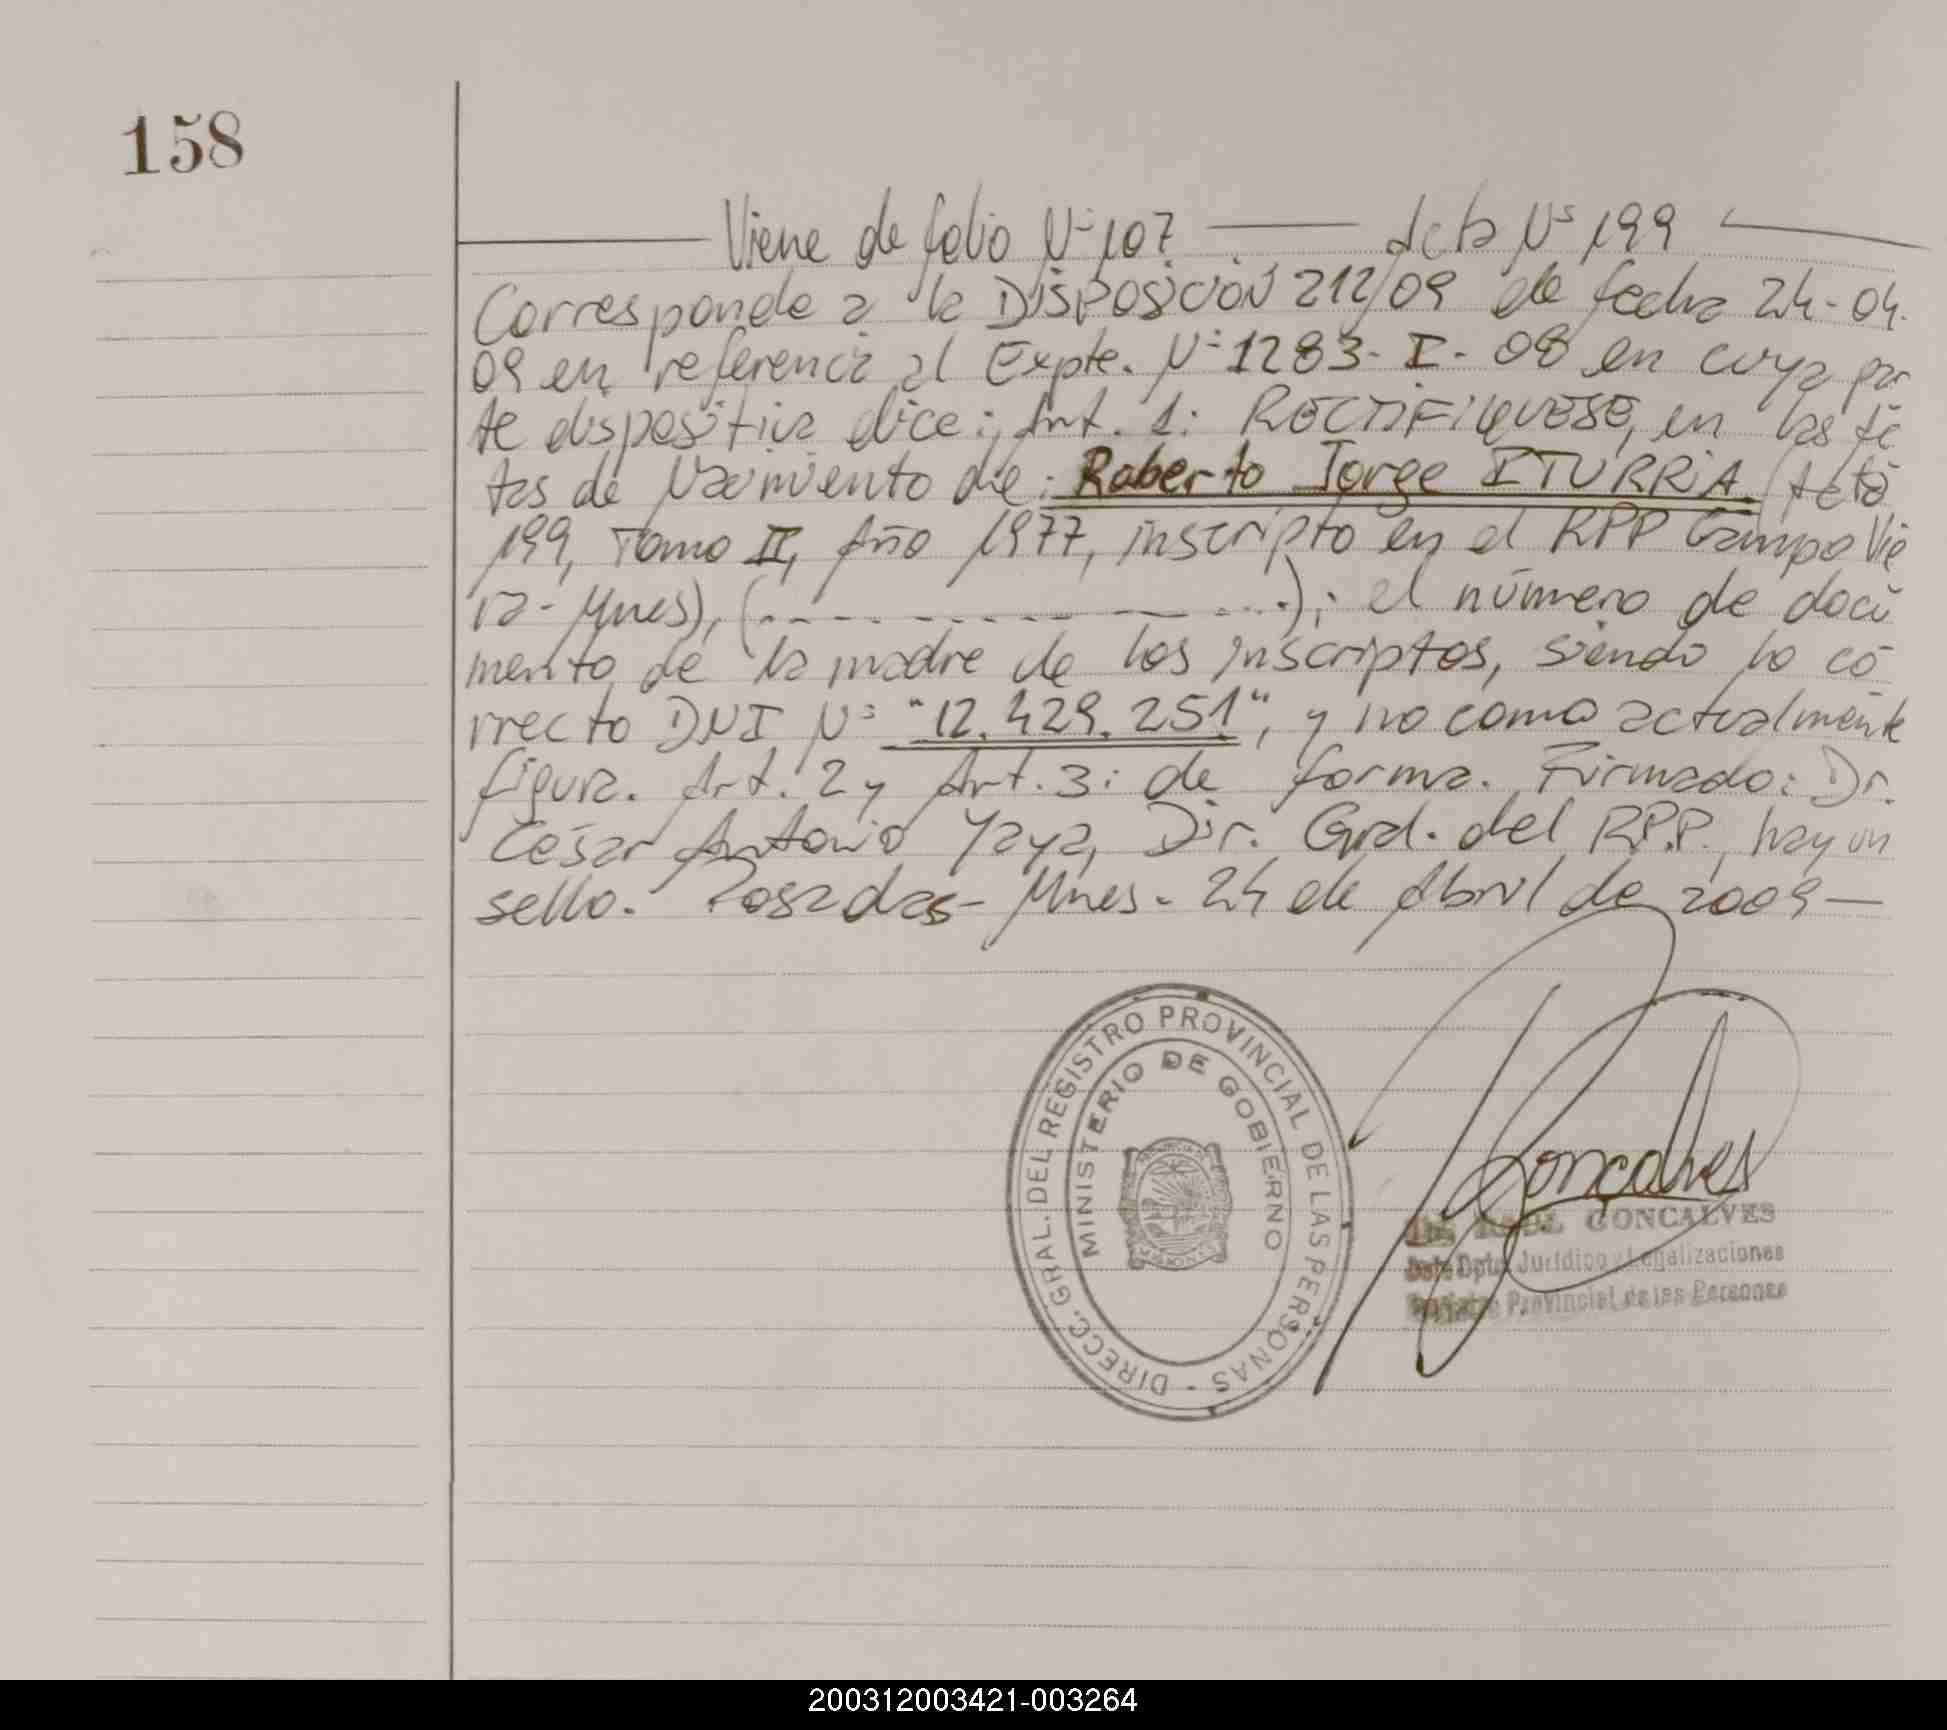 158
Viene de folio Nº 107 —— Acta Nº 199 ——
Corresponde a la DISPOSICIÓN 212/09 de fecha 24-04-
09 en referencia al Expte. Nº 1283-I-08 en cuya par
te dispositiva dice: Art. 1: RECTIFIQUESE, en las Ac
tas de Nacimiento de: Roberto Jorge ITURRIA (Acta
199, Tomo II, Año 1977, inscripto en el RPP Campo Vie
ra-Mnes), (.- - - - - - - - - - ...); el número de docu
mento de la madre de los inscriptos, siendo lo co
rrecto DNI Nº "12.429.251", y no como actualmente
figura. Art. 2 y Art. 3: de forma. Firmado: Dr.
César Antonio Yaya, Dir. Gral. del RPP., hay un
sello. Posadas- Mnes- 24 de Abril de 2009 —
DIRECC. GRAL. DEL REGISTRO PROVINCIAL DE LAS PERSONAS -
MINISTERIO DE GOBIERNO
Gonçalves
GONCALVES
Dpto. Jurídico y Legalizaciones
Provincial de las Personas
200312003421-003264